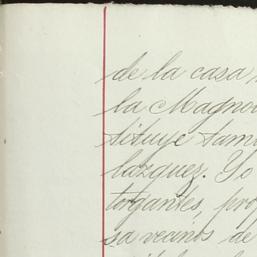 de la casa
la Magno
tituye tam
lazquez. Yo
torgantes, pro
sa vecinos de